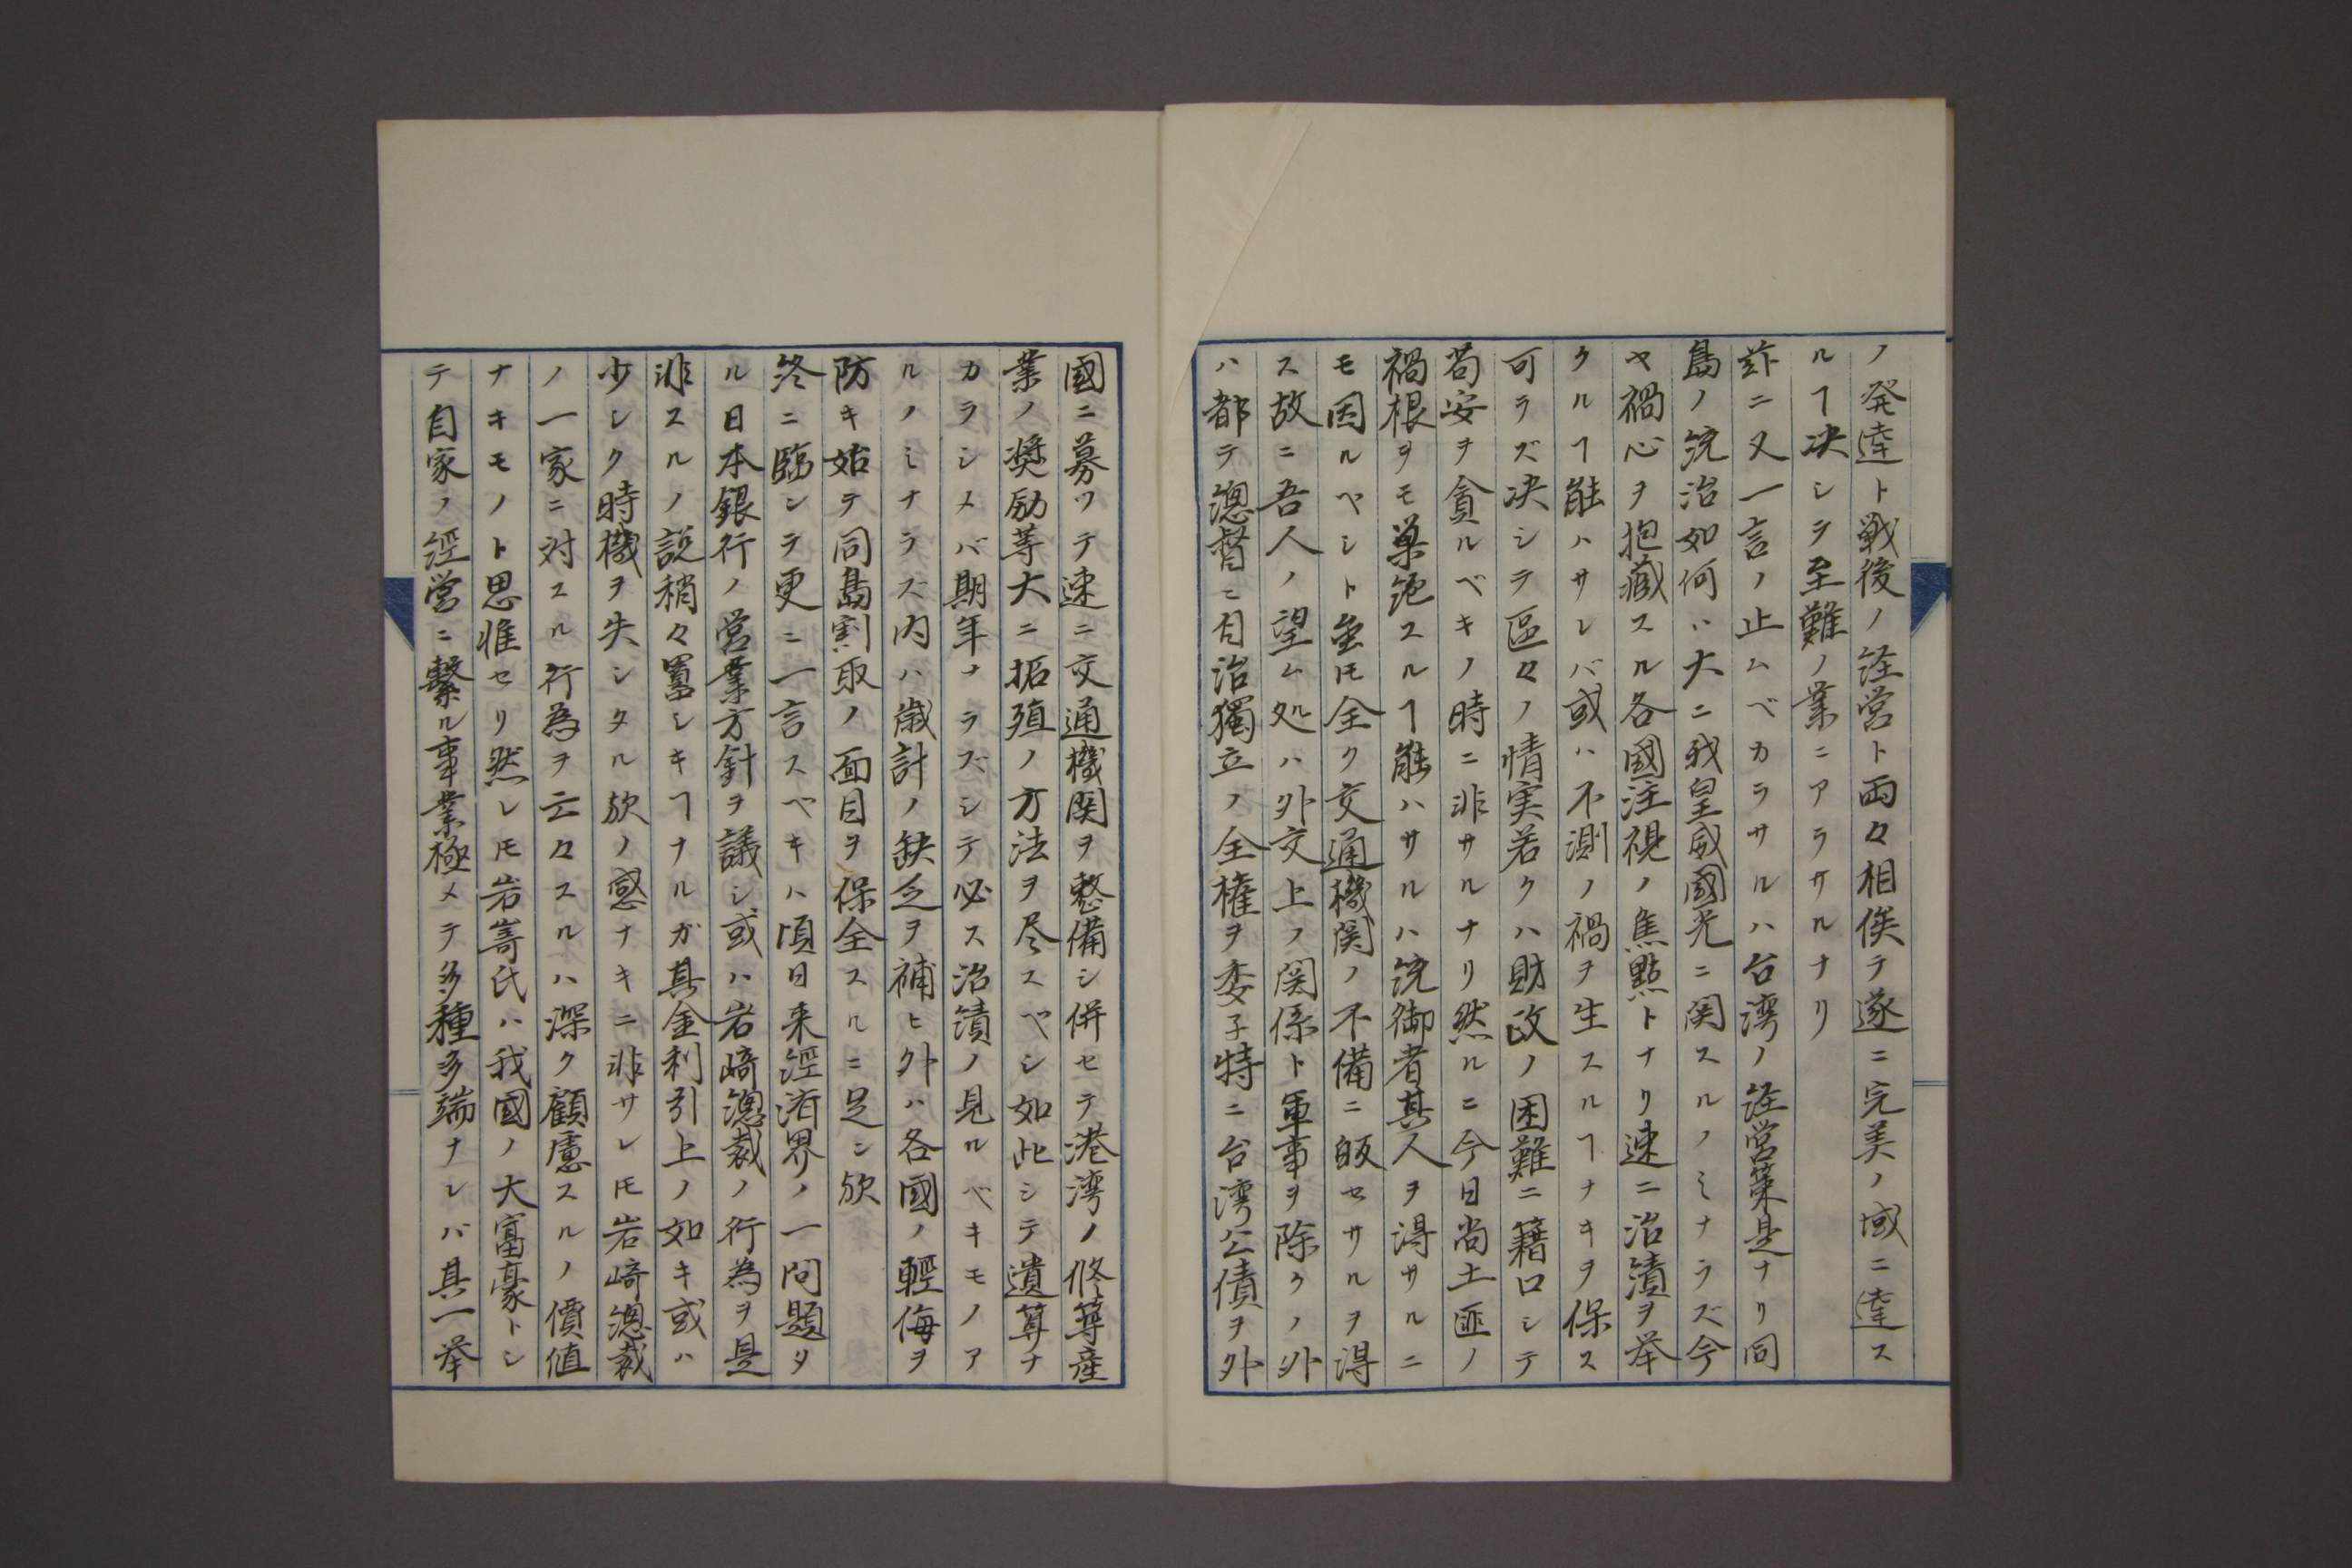 ノ発達ト戦後ノ経営ト両々相俟テ遂ニ完美ノ域ニ達ス
ルヿ决シテ至難ノ業ニアラサルナリ
玆ニ又一言ノ止ムベカラサルハ台湾ノ経営策是ナリ同
島ノ統治如何ハ大ニ我皇威國光ニ関スルノミナラズ今
ヤ禍心ヲ抱藏スル各國注視ノ焦點トナリ速ニ治漬ヲ举
クルヿ能ハサレバ或ハ不測ノ禍ヲ生スルヿナキヲ保ス
可ラズ决シテ區々ノ情実若クハ財政ノ困難ニ籍口シテ
苟安ヲ貪ルベキノ時ニ非サルナリ然ルニ今日尚土匪ノ
禍根ヲモ巣絶スルヿ能ハサルハ統御者其人ヲ得サルニ
モ因ルヘシト虽𪜈全ク交通機関ノ不備ニ皈セサルヲ得
ス故ニ吾人ノ望ム処ハ外交上ノ関係ト軍事ヲ除クノ外
ハ都テ總督ニ自治獨立ノ全権ヲ委子特ニ台湾公債ヲ外
國ニ募ツテ速ニ交通機関ヲ整備シ併セテ港湾ノ修築産
業ノ奨励等大ニ拓殖ノ方法ヲ尽スヘシ如此シテ遺算ナ
カラシメバ期年ナラズシテ必ス治漬ノ見ルベキモノア
ルノミナラズ内ハ歳計ノ缺乏ヲ補ヒ外ハ各國ノ輕侮ヲ
防キ始テ同島割取ノ面目ヲ保全スルニ足ン欤
終ニ臨ンテ更ニ一言スヘキハ頃日来經済界ノ一問題タ
ル日本銀行ノ営業方針ヲ議シ或ハ岩﨑總裁ノ行為ヲ是
非スルノ説稍々囂シキヿナルガ其金利引上ノ如キ或ハ
少シク時機ヲ失シタル欤ノ感ナキニ非サレ𪜈岩﨑總裁
ノ一家ニ対スル行為ヲ云々スルハ深ク顧慮スルノ價値
ナキモノト思惟セリ然レ𪜈岩嵜氏ハ我國ノ大富豪トシ
テ自家ノ經営ニ繋ル事業極メテ多種多端ナレバ其一举